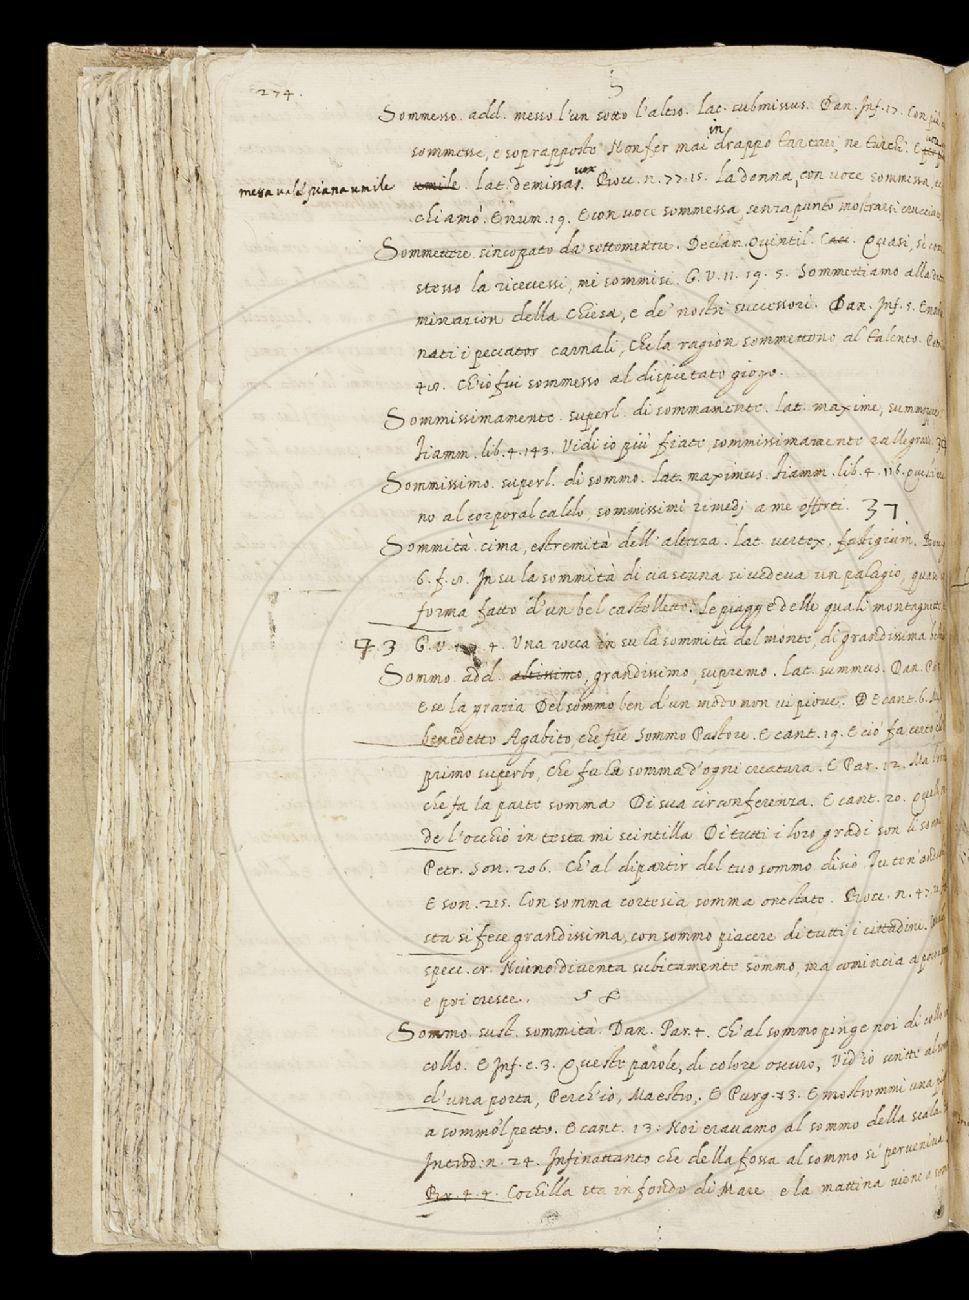 274.
S
Sommesso. add. messo l'un sotto l'altro. lat. submissus. Dan. Inf. 17. Con più
sommesse, e soprapposte Non fer mai in drappo Tartari, ne Turchi. E
messa valsl piana umile umile. lat. demissa vox. Bocc. n. 77. 15. La donna, con voce sommessa,
chiamò. E num. 19. E con voce sommessa, senza punto mostrarsi crucciata
Sommettere sincopato da sottomettere. Declam. Quintil. Quasi, sì con
stesso la ricevessi, mi sommisi. G. V. 11. 19. 5. Sommettiamo alla
minazion della Chiesa, e de' nostri successori. Dan. Inf. 5. Enno
nati i peccator carnali, Che la ragion sommettono al talento.
Ch'io fui sommesso al dispietato giogo.
Sommissimamente. superl. di sommamente. lat. maxime, summopere
Fiamm. lib. 4. 143. Vidi io più fiate, sommissimamente rallegrarsi.
Sommissimo. superl. di sommo. lat. maximus. Fiamm. lib. 4. 116.
no al corporal caldo, sommissimi rimedj a me offerti. 37
Sommità. cima, estremità dell'altezza. lat. vertex, fastigium.
6. f. In su la sommità di ciascuna si vedeva un palagio, quasi
forma fatto d'un bel castelletto. Le piagge delle quali montagnette
43 G. V. 4. Una rocca in su la sommità del monte, di grandissima
Sommo. add. altissimo, grandissimo, supremo. lat. summus. Dan. Par
E se la grazia Del sommo ben d'un modo non vi piove. E cant. 6.
benedetto Agabito, che fue Sommo Pastore. E cant. 19. E ciò fa certo
primo superbo, Che fu la somma d'ogni creatura. E Par. 12. Ma
che fe la parte somma Di sua circonferenza. E cant. 20.
de l'occhio in testa mi scintilla Di tutti i loro gradi son li sommi
Petr. Son. 206. Ch'al dipartir del tuo sommo disio Tu ten'
E son. 215. Con somma cortesia somma onestate. Bocc. n. 47.
sta si fece grandissima, con sommo piacere di tutti i cittadini.
specc. cr. Niuno diventa subitamente sommo, ma comincia a
e poi cresce. 58
Sommo. sust. sommità. Dan. Par. 4. Ch'al sommo pinge noi di collo
collo. E Inf. c. 3. Queste parole, di colore oscuro, Vid'io scritte al
d'una porta, Perch'io, Maestro,. E Purg. 3. E mostrommi una
a sommo'l petto. E cant. 13. Noi eravamo al sommo della scala.
Introd. n. 24. Infinattanto che della fossa al sommo si perveniva.
Br. 4. 4. Cochilla sta in fondo di Mare e la mattina viene a